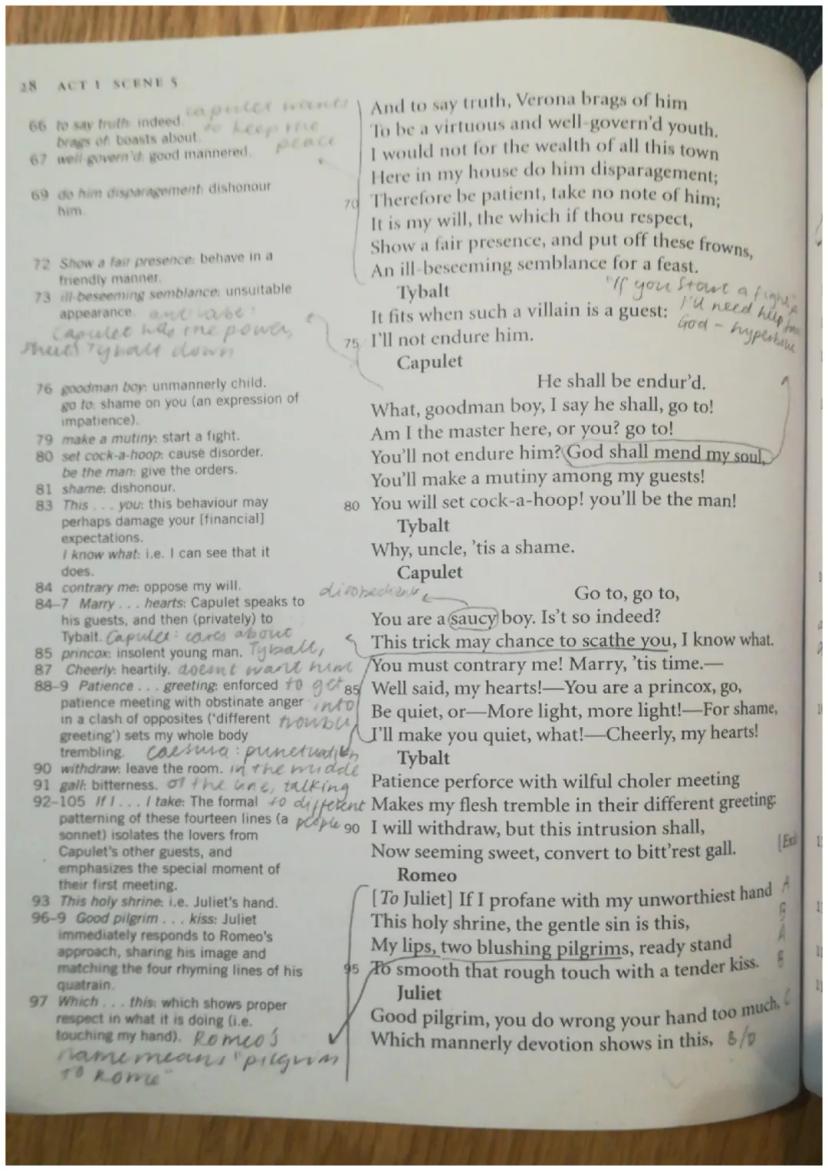 28 ACT 1 SCENE 5
66 to say truth: indeed.
brags of: boasts about.
67 well-govern'd: good mannered.
capulet wants
to keep the
peace
69 do him disparagement: dishonour
him.
72 Show a fair presence: behave in a
friendly manner.
73 ill-beseeming semblance: unsuitable
appearance.
Capulet has the power,
shuts Tybalt down
76 goodman boy: unmannerly child.
go to: shame on you (an expression of
impatience).
79 make a mutiny: start a fight.
80 set cock-a-hoop: cause disorder.
be the man: give the orders.
81 shame: dishonour.
83 This . . . you: this behaviour may
perhaps damage your [financial]
expectations.
I know what: i.e. I can see that it
does.
84 contrary me: oppose my will.
84–7 Marry . . . hearts: Capulet speaks to
his guests, and then (privately) to
Tybalt.
85 princox: insolent young man.
87 Cheerly: heartily.
Capulet: cares about
Tybalt,
doesnt want him
to get
into
trouble
88–9 Patience . . . greeting: enforced
patience meeting with obstinate anger
in a clash of opposites ('different
greeting') sets my whole body
trembling.
90 withdraw: leave the room.
91 gall: bitterness.
caesura: punctuation
in the middle
of the line, talking
to different
people
92–105 If I . . . I take: The formal
patterning of these fourteen lines (a
sonnet) isolates the lovers from
Capulet's other guests, and
emphasizes the special moment of
their first meeting.
93 This holy shrine: i.e. Juliet's hand.
96–9 Good pilgrim . . . kiss: Juliet
immediately responds to Romeo's
approach, sharing his image and
matching the four rhyming lines of his
quatrain.
97 Which . . . this: which shows proper
respect in what it is doing (i.e.
touching my hand).
Romeo's
name means "pilgrim
to Rome"
And to say truth, Verona brags of him
To be a virtuous and well-govern'd youth.
I would not for the wealth of all this town
Here in my house do him disparagement;
70 Therefore be patient, take no note of him;
It is my will, the which if thou respect,
Show a fair presence, and put off these frowns,
An ill-beseeming semblance for a feast.
Tybalt
It fits when such a villain is a guest:
75 I'll not endure him.
"If you start a fight,
I'll need help from
God – hyperbole
Capulet
He shall be endur'd.
What, goodman boy, I say he shall, go to!
Am I the master here, or you? go to!
You'll not endure him? God shall mend my soul,
You'll make a mutiny among my guests!
80 You will set cock-a-hoop! you'll be the man!
Tybalt
Why, uncle, 'tis a shame.
Capulet
Go to, go to,
You are a saucy boy. Is't so indeed?
This trick may chance to scathe you, I know what.
You must contrary me! Marry, 'tis time.—
85 Well said, my hearts!—You are a princox, go,
Be quiet, or—More light, more light!—For shame,
I'll make you quiet, what!—Cheerly, my hearts!
Tybalt
Patience perforce with wilful choler meeting
Makes my flesh tremble in their different greeting:
90 I will withdraw, but this intrusion shall,
Now seeming sweet, convert to bitt'rest gall.
Romeo
[To Juliet] If I profane with my unworthiest hand A
This holy shrine, the gentle sin is this, B
My lips, two blushing pilgrims, ready stand A
95 To smooth that rough touch with a tender kiss. B
Juliet
Good pilgrim, you do wrong your hand too much, C
Which mannerly devotion shows in this, B/D